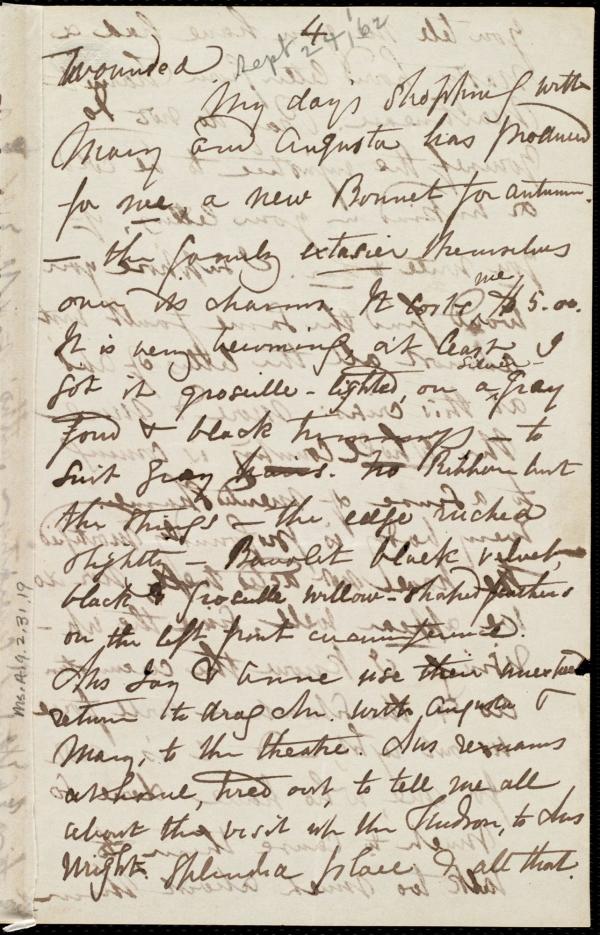 4
Sept 24, '62
wounded
My day's shopping with
Mary and Augusta has produced
for me, a new Bonnet for autumn.
— the family extasier themselves
over its charms. It costs me $5.00.
It is very becoming, at least I
got it groseille - lighted, on a silver Gray
fond & black trimmings — to
suit gray hairs. No Ribbon but
the strings & the edge ruched
slightly — Bavolet black velvet,
black & Groseille willow-shaped feathers
on the left front circumference.
Mrs Gay & Anne use their
return to drag Mr. with Augusta &
Mary, to the theatre. Aus remains
at home, tired out, to tell me all
about the visit up the Hudson, to Aus
Wright's splendid place & all that.
Ms.A.9.2.31.19